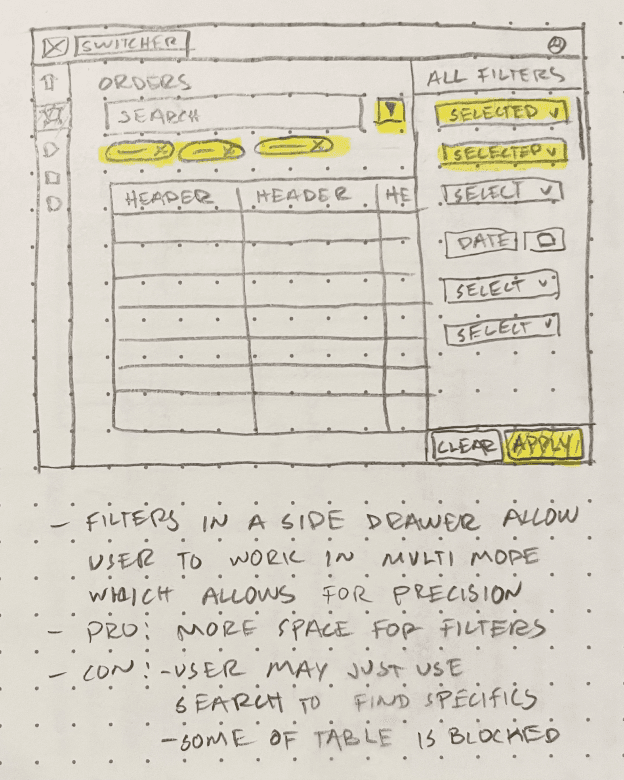 SWITCHER
ORDERS
SEARCH
HEADER HEADER HE
ALL FILTERS
SELECTED
SELECTED
SELECT
DATE
SELECT
SELECT
CLEAR APPLY
- FILTERS IN A SIDE DRAWER ALLOW
USER TO WORK IN MULTI MODE
WHICH ALLOWS FOR PRECISION
- PRO: MORE SPACE FOR FILTERS
- CON: - USER MAY JUST USE
SEARCH TO FIND SPECIFICS
- SOME OF TABLE IS BLOCKED